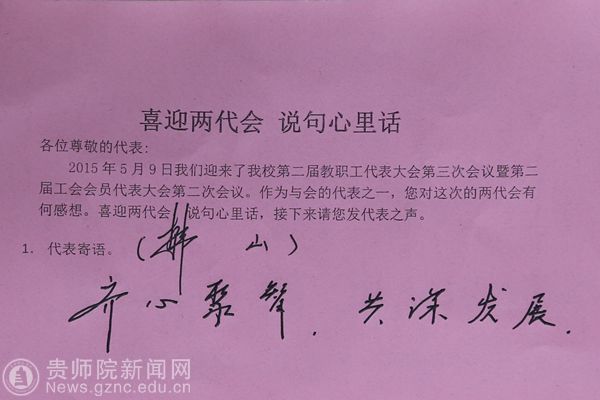 喜迎两代会 说句心里话
各位尊敬的代表:
2015年5月9日我们迎来了我校第二届教职工代表大会第三次会议暨第二
届工会会员代表大会第二次会议。作为与会的代表之一，您对这次的两代会有
何感想。喜迎两代会 说句心里话，接下来请您发代表之声。
1. 代表寄语。(韩 山)
齐心聚声，共谋发展.
贵师院新闻网
News.gznc.edu.cn